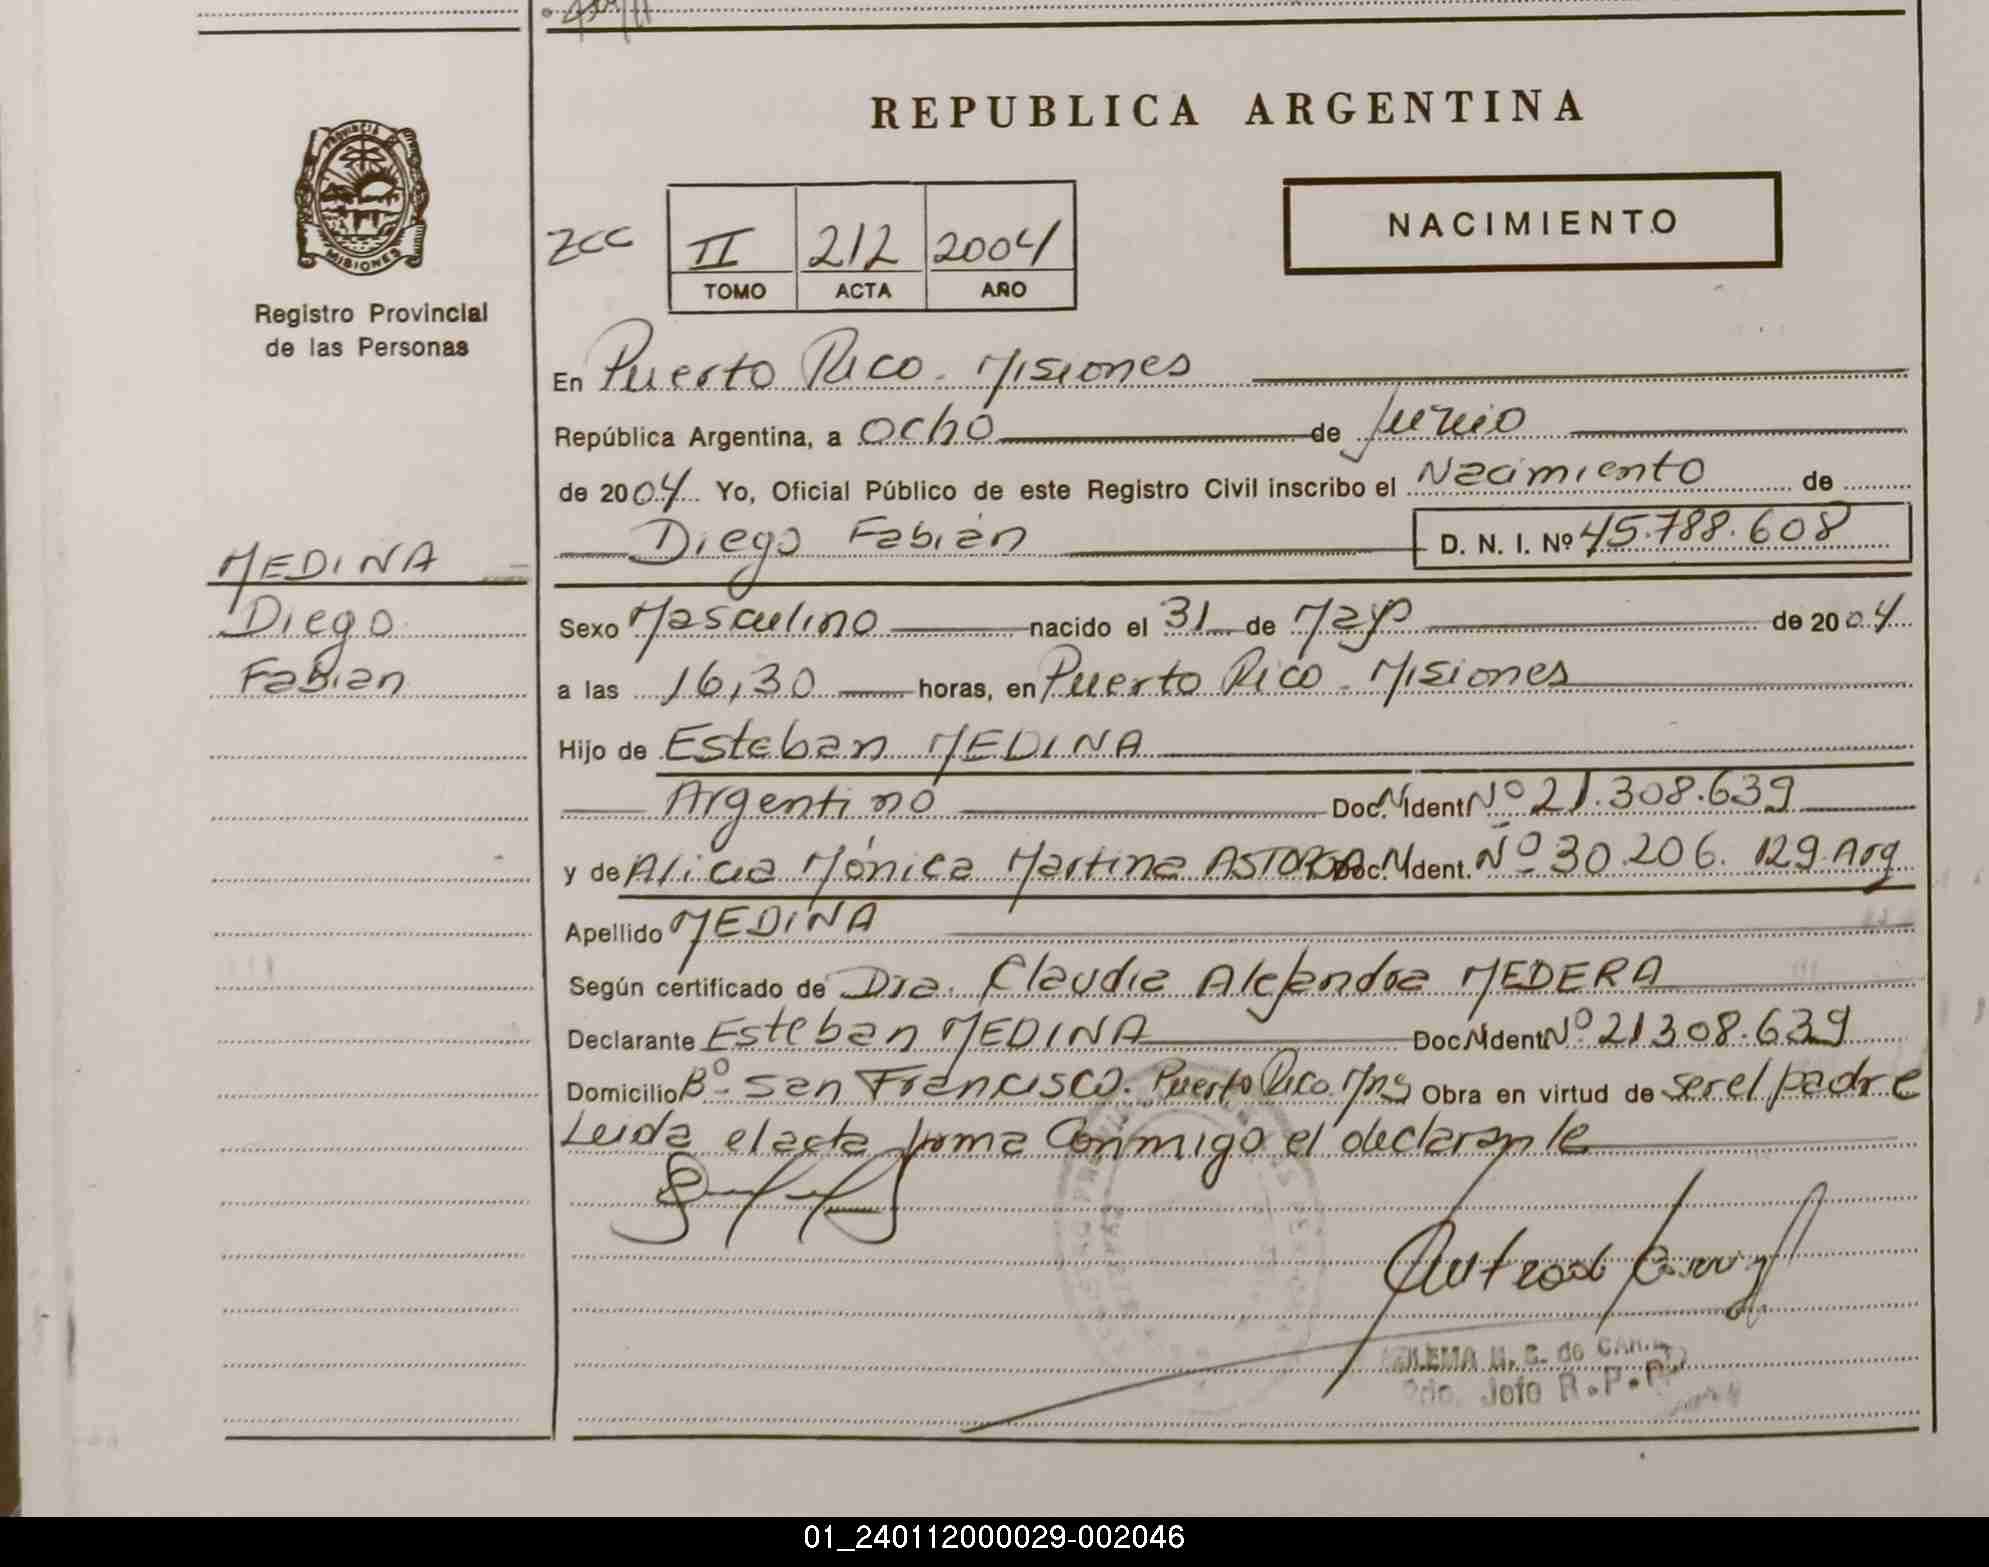 REPUBLICA ARGENTINA
PROVINCIA DE
MISIONES
Registro Provincial
de las Personas
NACIMIENTO
zcc II 212 2004
TOMO ACTA AÑO
En Puerto Rico - Misiones
República Argentina, a ocho de Junio
de 2004 Yo, Oficial Público de este Registro Civil inscribo el Nacimiento de
Diego Fabián D. N. I. Nº 45.788.608
MEDINA
Diego
Fabian
Sexo Masculino nacido el 31 de Mayo de 2004
a las 16,30 horas, en Puerto Rico - Misiones
Hijo de Esteban MEDINA
Argentino Doc. N Ident Nº 21.308.639
y de Alicia Mónica Martina Doc. N Ident. Nº 30.206.129. Arg
Apellido MEDINA
Según certificado de Dra. Claudia Alejandra MEDERA
Declarante Esteban MEDINA Doc N Ident Nº 21308.639
Domicilio Bº San Francisco. Puerto Rico. Mns Obra en virtud de ser el padre
Leida el acta firma Conmigo el declarante
de
Jefe R.P.P.
01_240112000029-002046